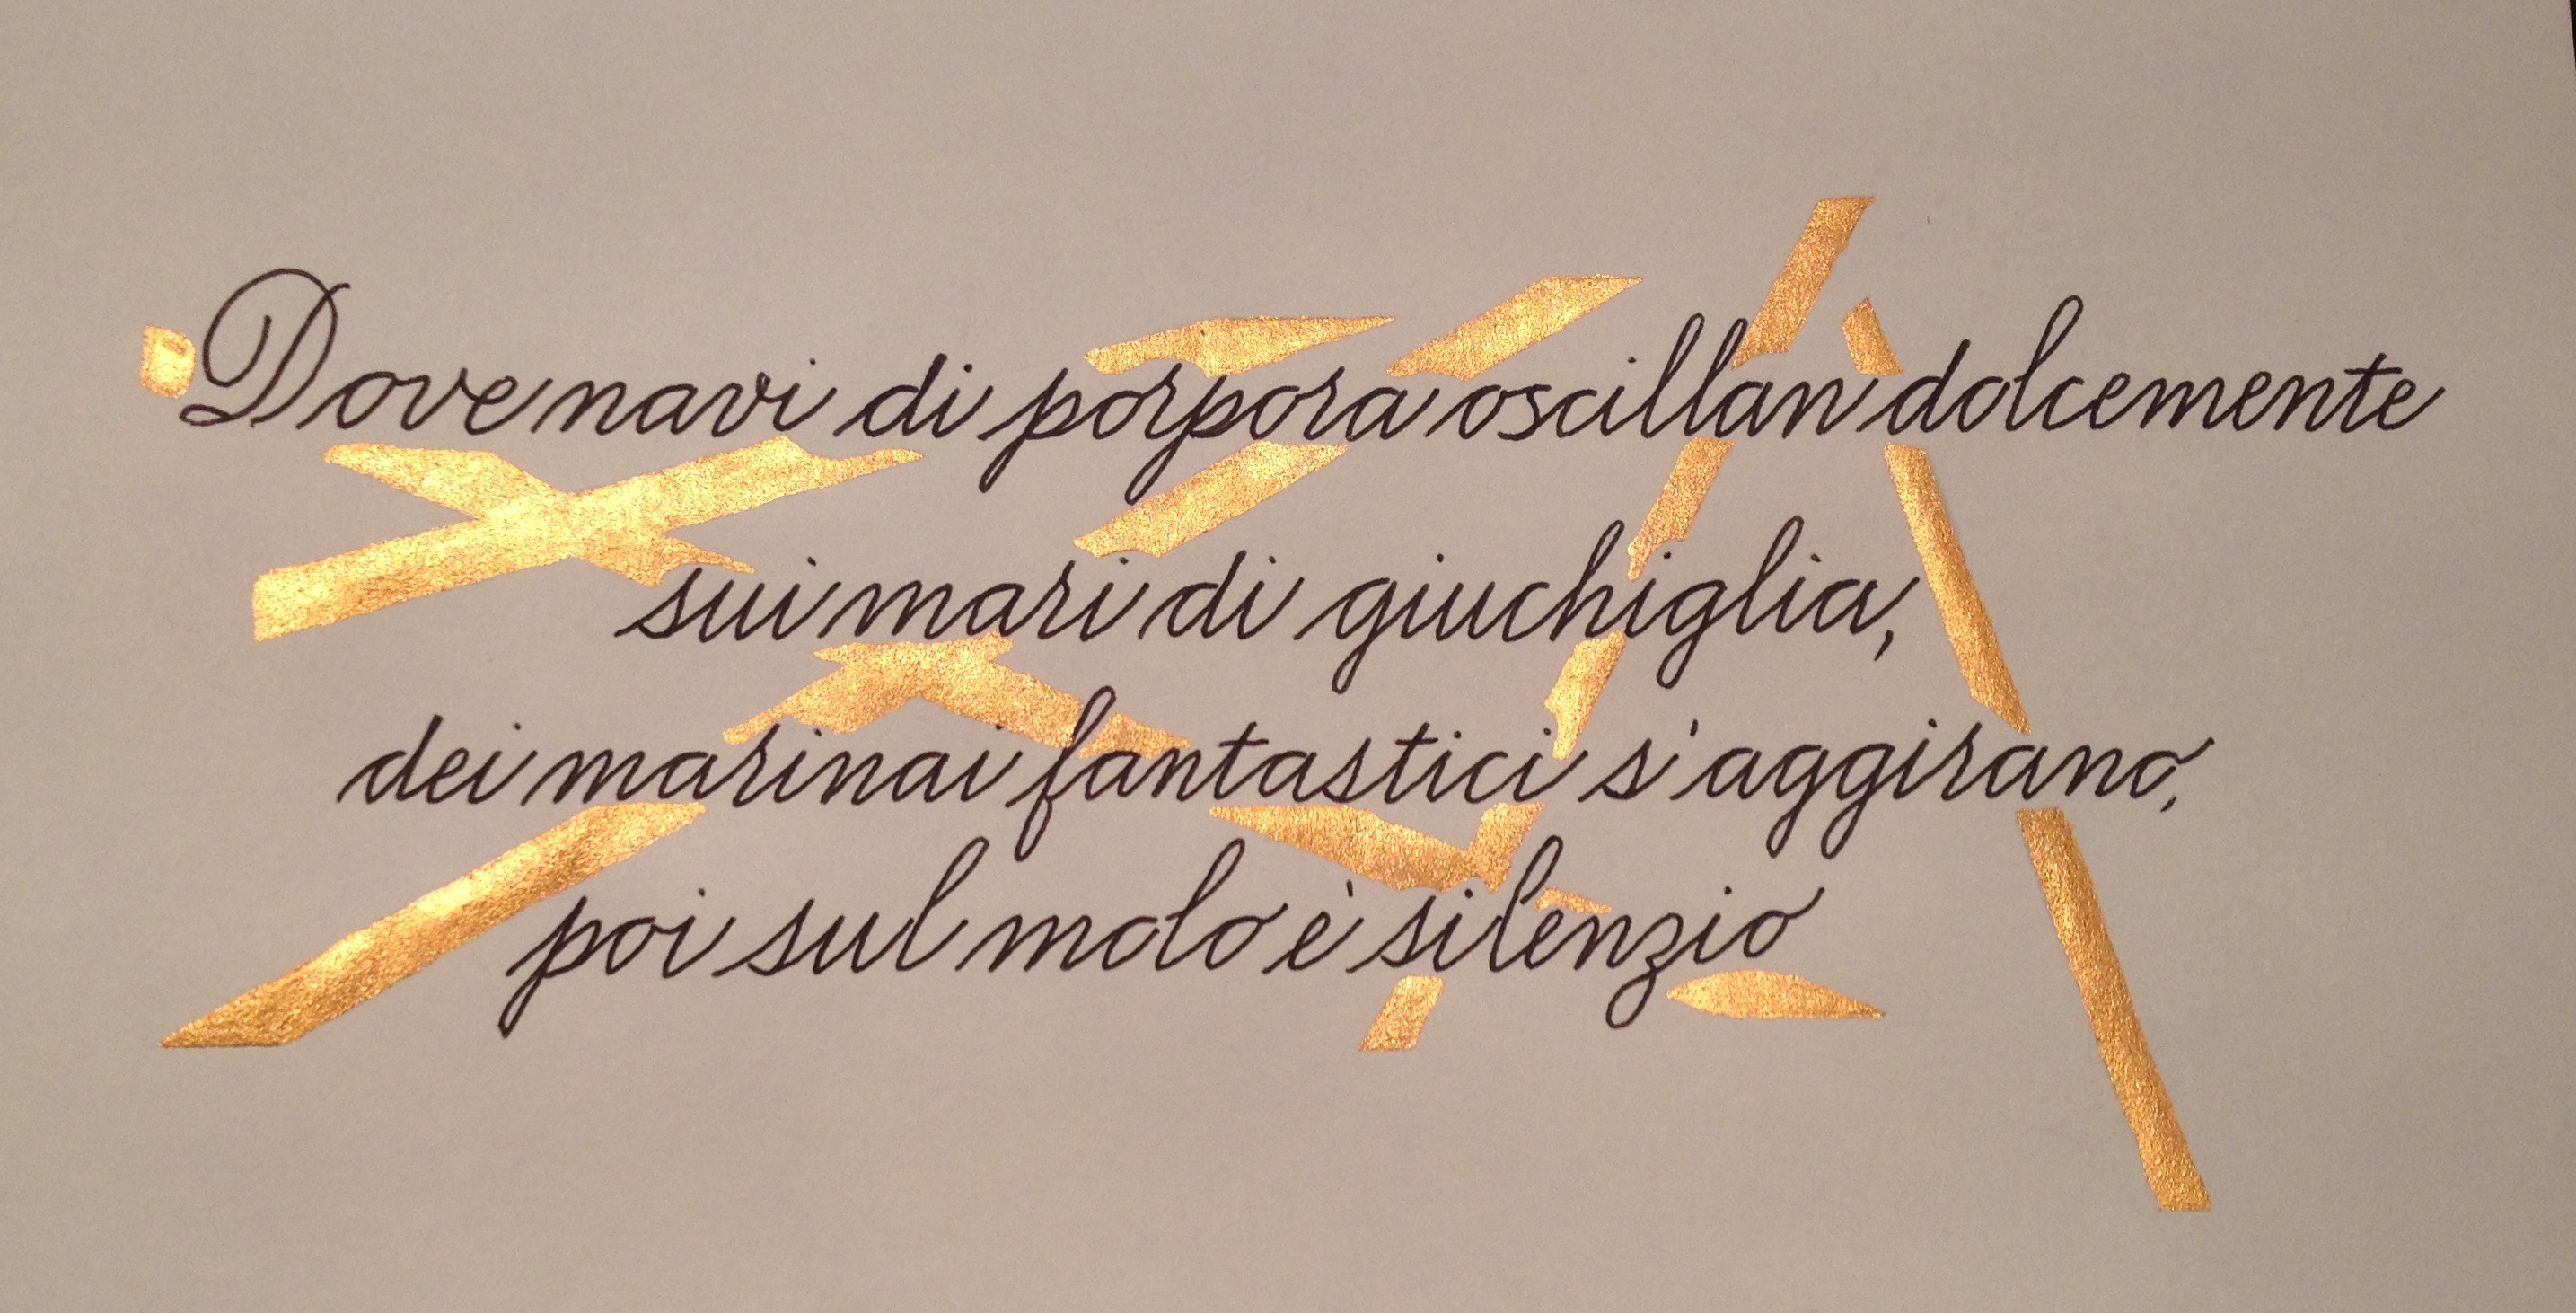 Dove navi di porpora oscillan dolcemente
sui mari di giuchiglia,
dei marinai fantastici s'aggirano,
poi sul molo è silenzio